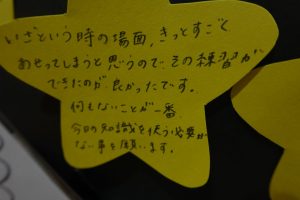 いざという時の場面、きっとすごく
あせってしまうと思うので、その練習が
できたのが良かったです。
何もないことが一番、
今日の知識を使う必要が
ない事を願います。